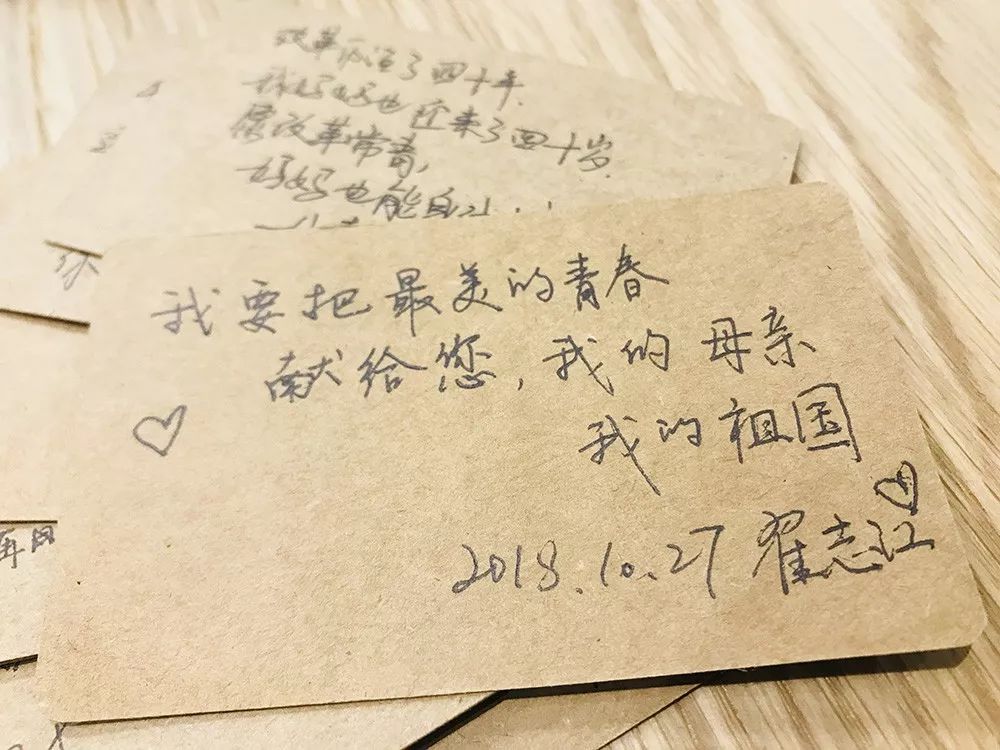 改革
了四十年
妈妈也迎来了四十岁
愿改革常青,
妈妈也能
你
我要把最美的青春
献给您,我的母亲
我的祖国
2018.10.27 翟志江
再回